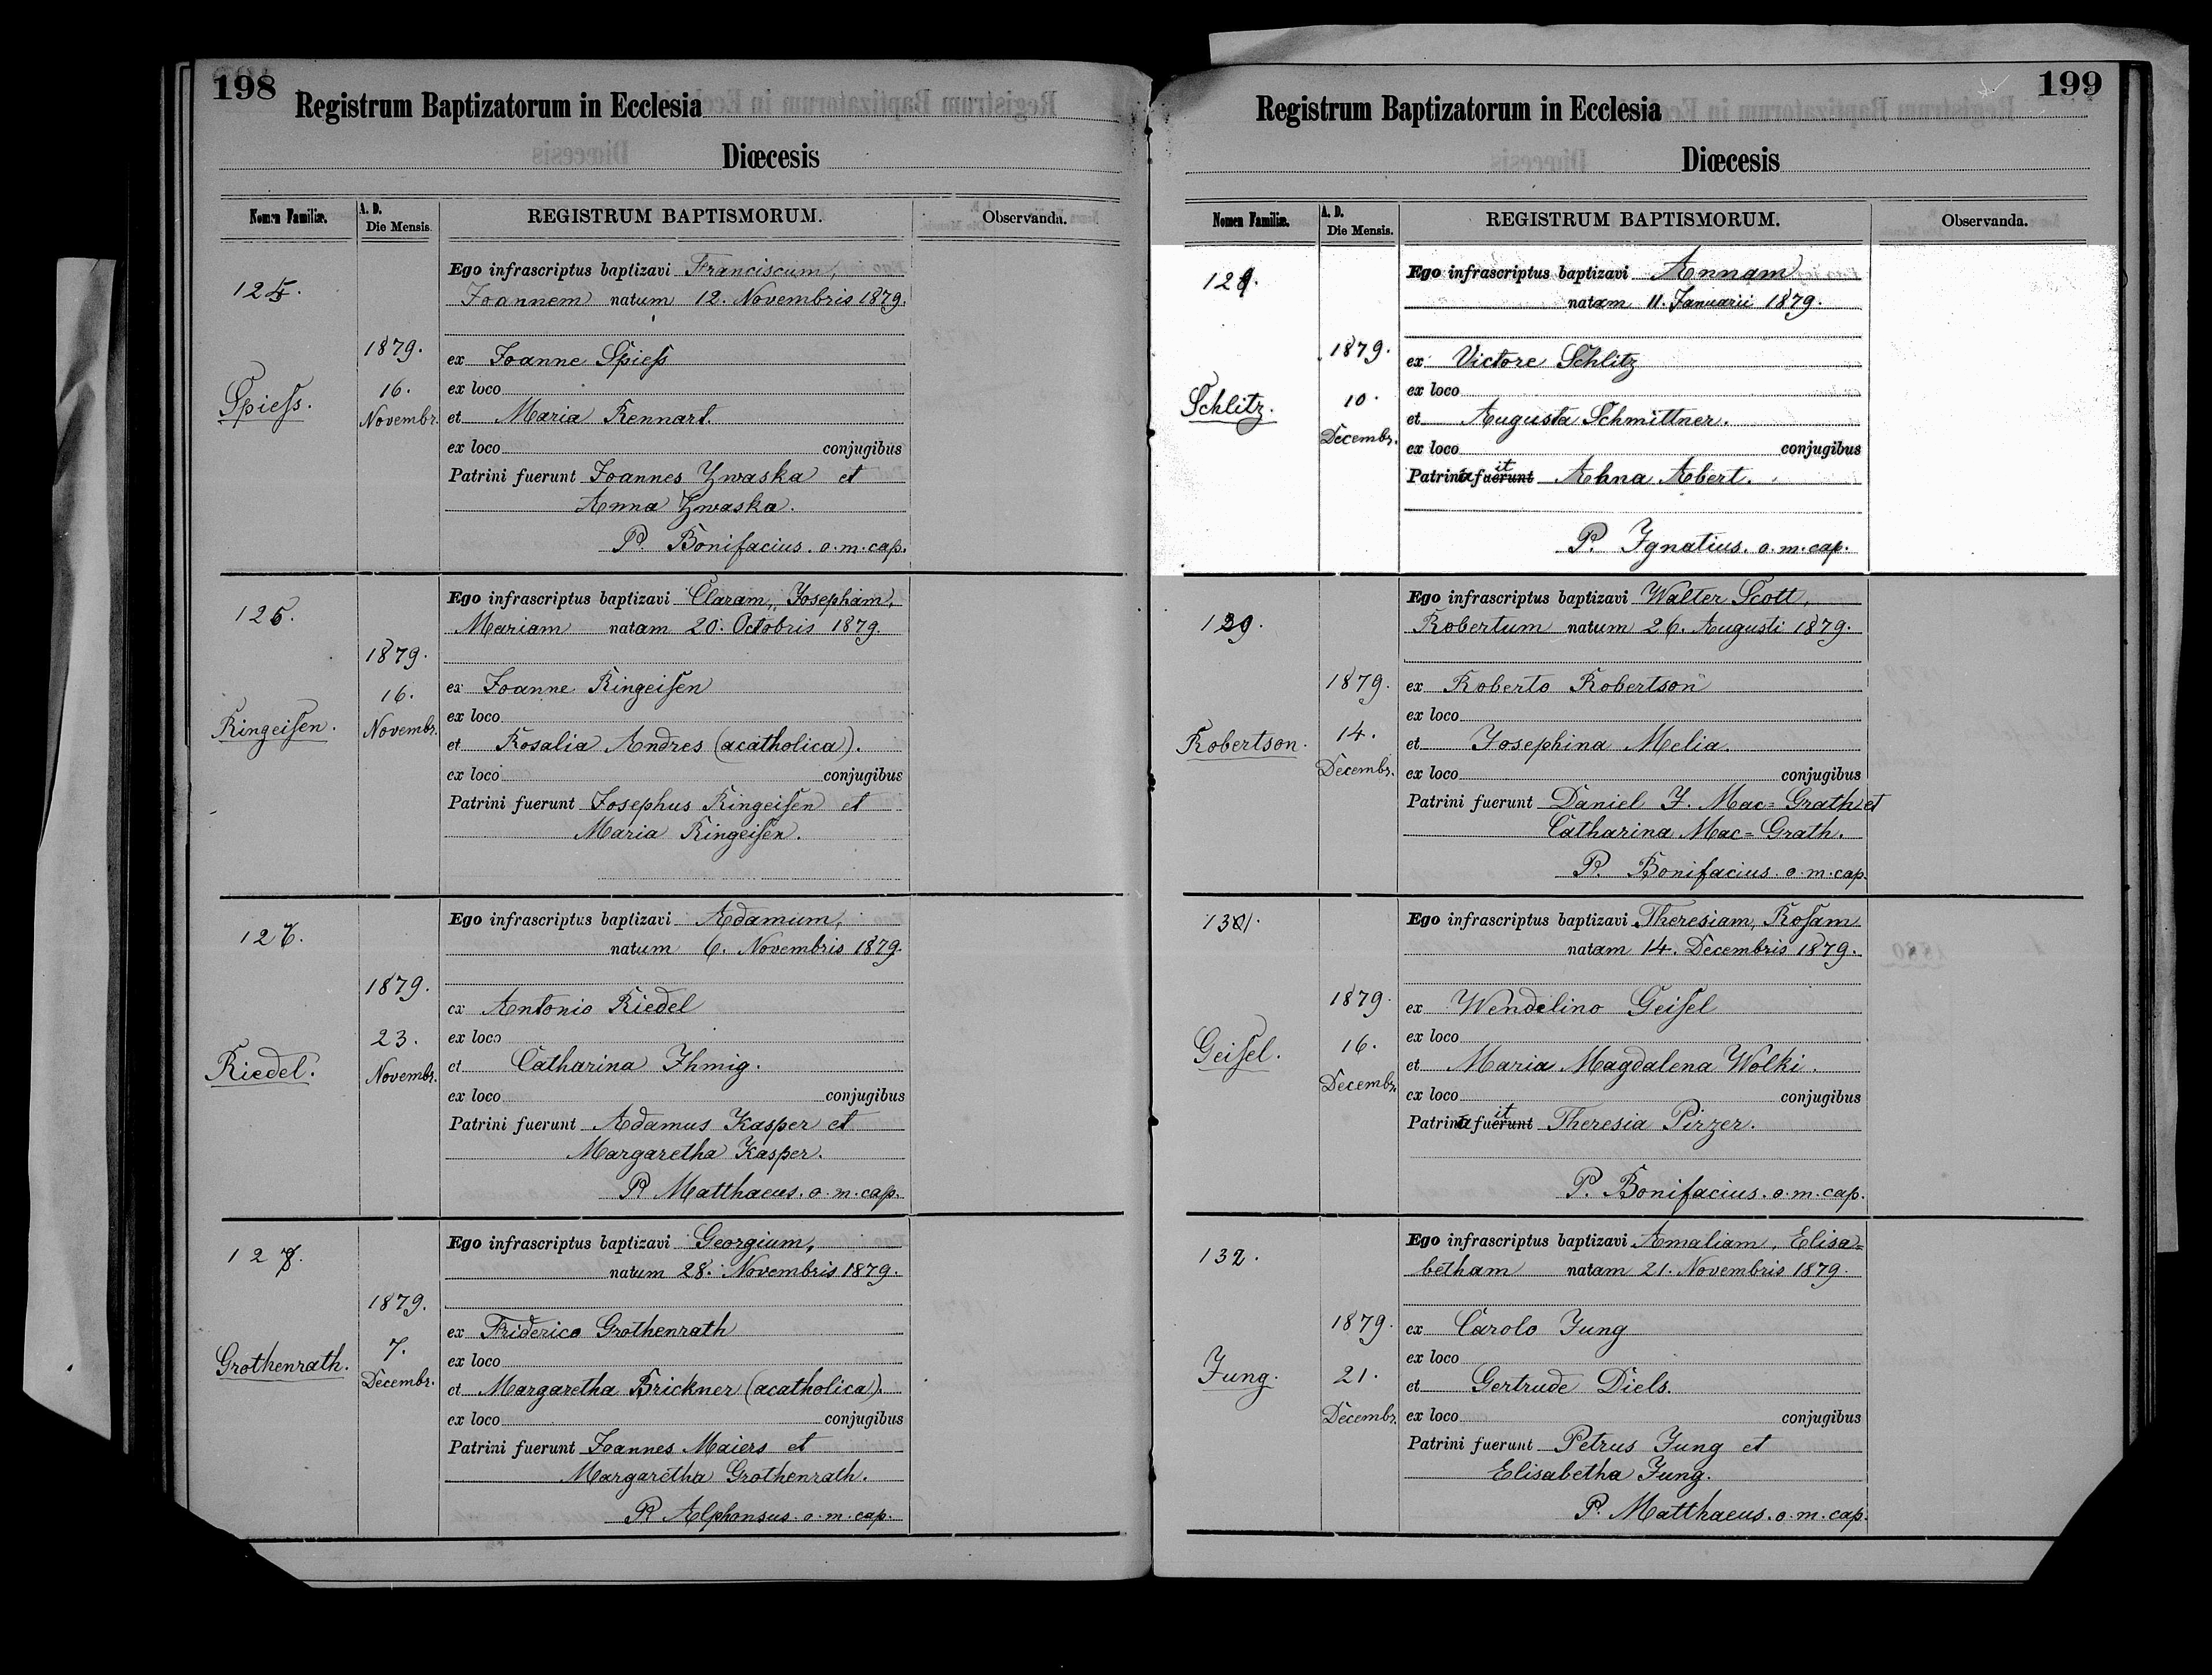 198
Registrum Baptizatorum in Ecclesia
Diœcesis
Nomen Familiæ.
A. D.
Die Mensis.
REGISTRUM BAPTISMORUM.
Observanda.
125.
Spieſs.
1879.
16.
Novembr.
Ego infrascriptus baptizavi Franciscum,
Joannem natum 12. Novembris 1879.
ex Joanne Spieſs
ex loco
et Maria Rennart.
ex loco conjugibus
Patrini fuerunt Joannes Zwaska et
Anna Zwaska.
P. Bonifacius. o. m. cap.
126.
Ringeiſen.
1879.
16.
Novembr.
Ego infrascriptus baptizavi Claram, Josepham,
Mariam natam 20. Octobris 1879.
ex Joanne Ringeiſen
ex loco
et Rosalia Andres (acatholica).
ex loco conjugibus
Patrini fuerunt Josephus Ringeiſen et
Maria Ringeiſen.
127.
Riedel.
1879.
23.
Novembr.
Ego infrascriptus baptizavi Adamum,
natum 6. Novembris 1879.
ex Antonio Riedel
ex loco
et Catharina Ihmig.
ex loco conjugibus
Patrini fuerunt Adamus Kasper et
Margaretha Kasper.
P. Matthaeus. o. m. cap.
128.
Grothenrath.
1879.
7.
Decembr.
Ego infrascriptus baptizavi Georgium,
natum 28. Novembris 1879.
ex Friderico Grothenrath
ex loco
et Margaretha Brickner (acatholica).
ex loco conjugibus
Patrini fuerunt Joannes Maiers et
Margaretha Grothenrath.
P. Alphonsus. o. m. cap.
199
Registrum Baptizatorum in Ecclesia
Diœcesis
Nomen Familiæ.
A. D.
Die Mensis.
REGISTRUM BAPTISMORUM.
Observanda.
129.
Schlitz.
1879.
10.
Decembr.
Ego infrascriptus baptizavi Annam
natam 11. Januarii 1879.
ex Victore Schlitz
ex loco
et Augusta Schmittner.
ex loco conjugibus
Patrina fuerunt it Anna Abert.
P. Ignatius. o. m. cap.
Robertson.
1879.
14.
Decembr.
Ego infrascriptus baptizavi Walter Scott,
Robertum natum 26. Augusti 1879.
ex Roberto Robertson
ex loco
et Josephina Melia.
ex loco conjugibus
Patrini fuerunt Daniel J. Mac=Grath et
Catharina Mac=Grath.
P. Bonifacius. o. m. cap.
131.
Geiſel.
1879.
16.
Decembr.
Ego infrascriptus baptizavi Theresiam, Roſam
natam 14. Decembris 1879.
ex Wendelino Geiſel
ex loco
et Maria Magdalena Wolki.
ex loco conjugibus
Patrina fuerunt it Theresia Pirzer.
P. Bonifacius. o. m. cap.
132.
Jung.
1879.
21.
Decembr.
Ego infrascriptus baptizavi Amaliam, Elisa=
betham natam 21. Novembris 1879.
ex Carolo Jung
ex loco
et Gertrude Diels.
ex loco conjugibus
Patrini fuerunt Petrus Jung et
Elisabetha Jung.
P. Matthaeus. o. m. cap.